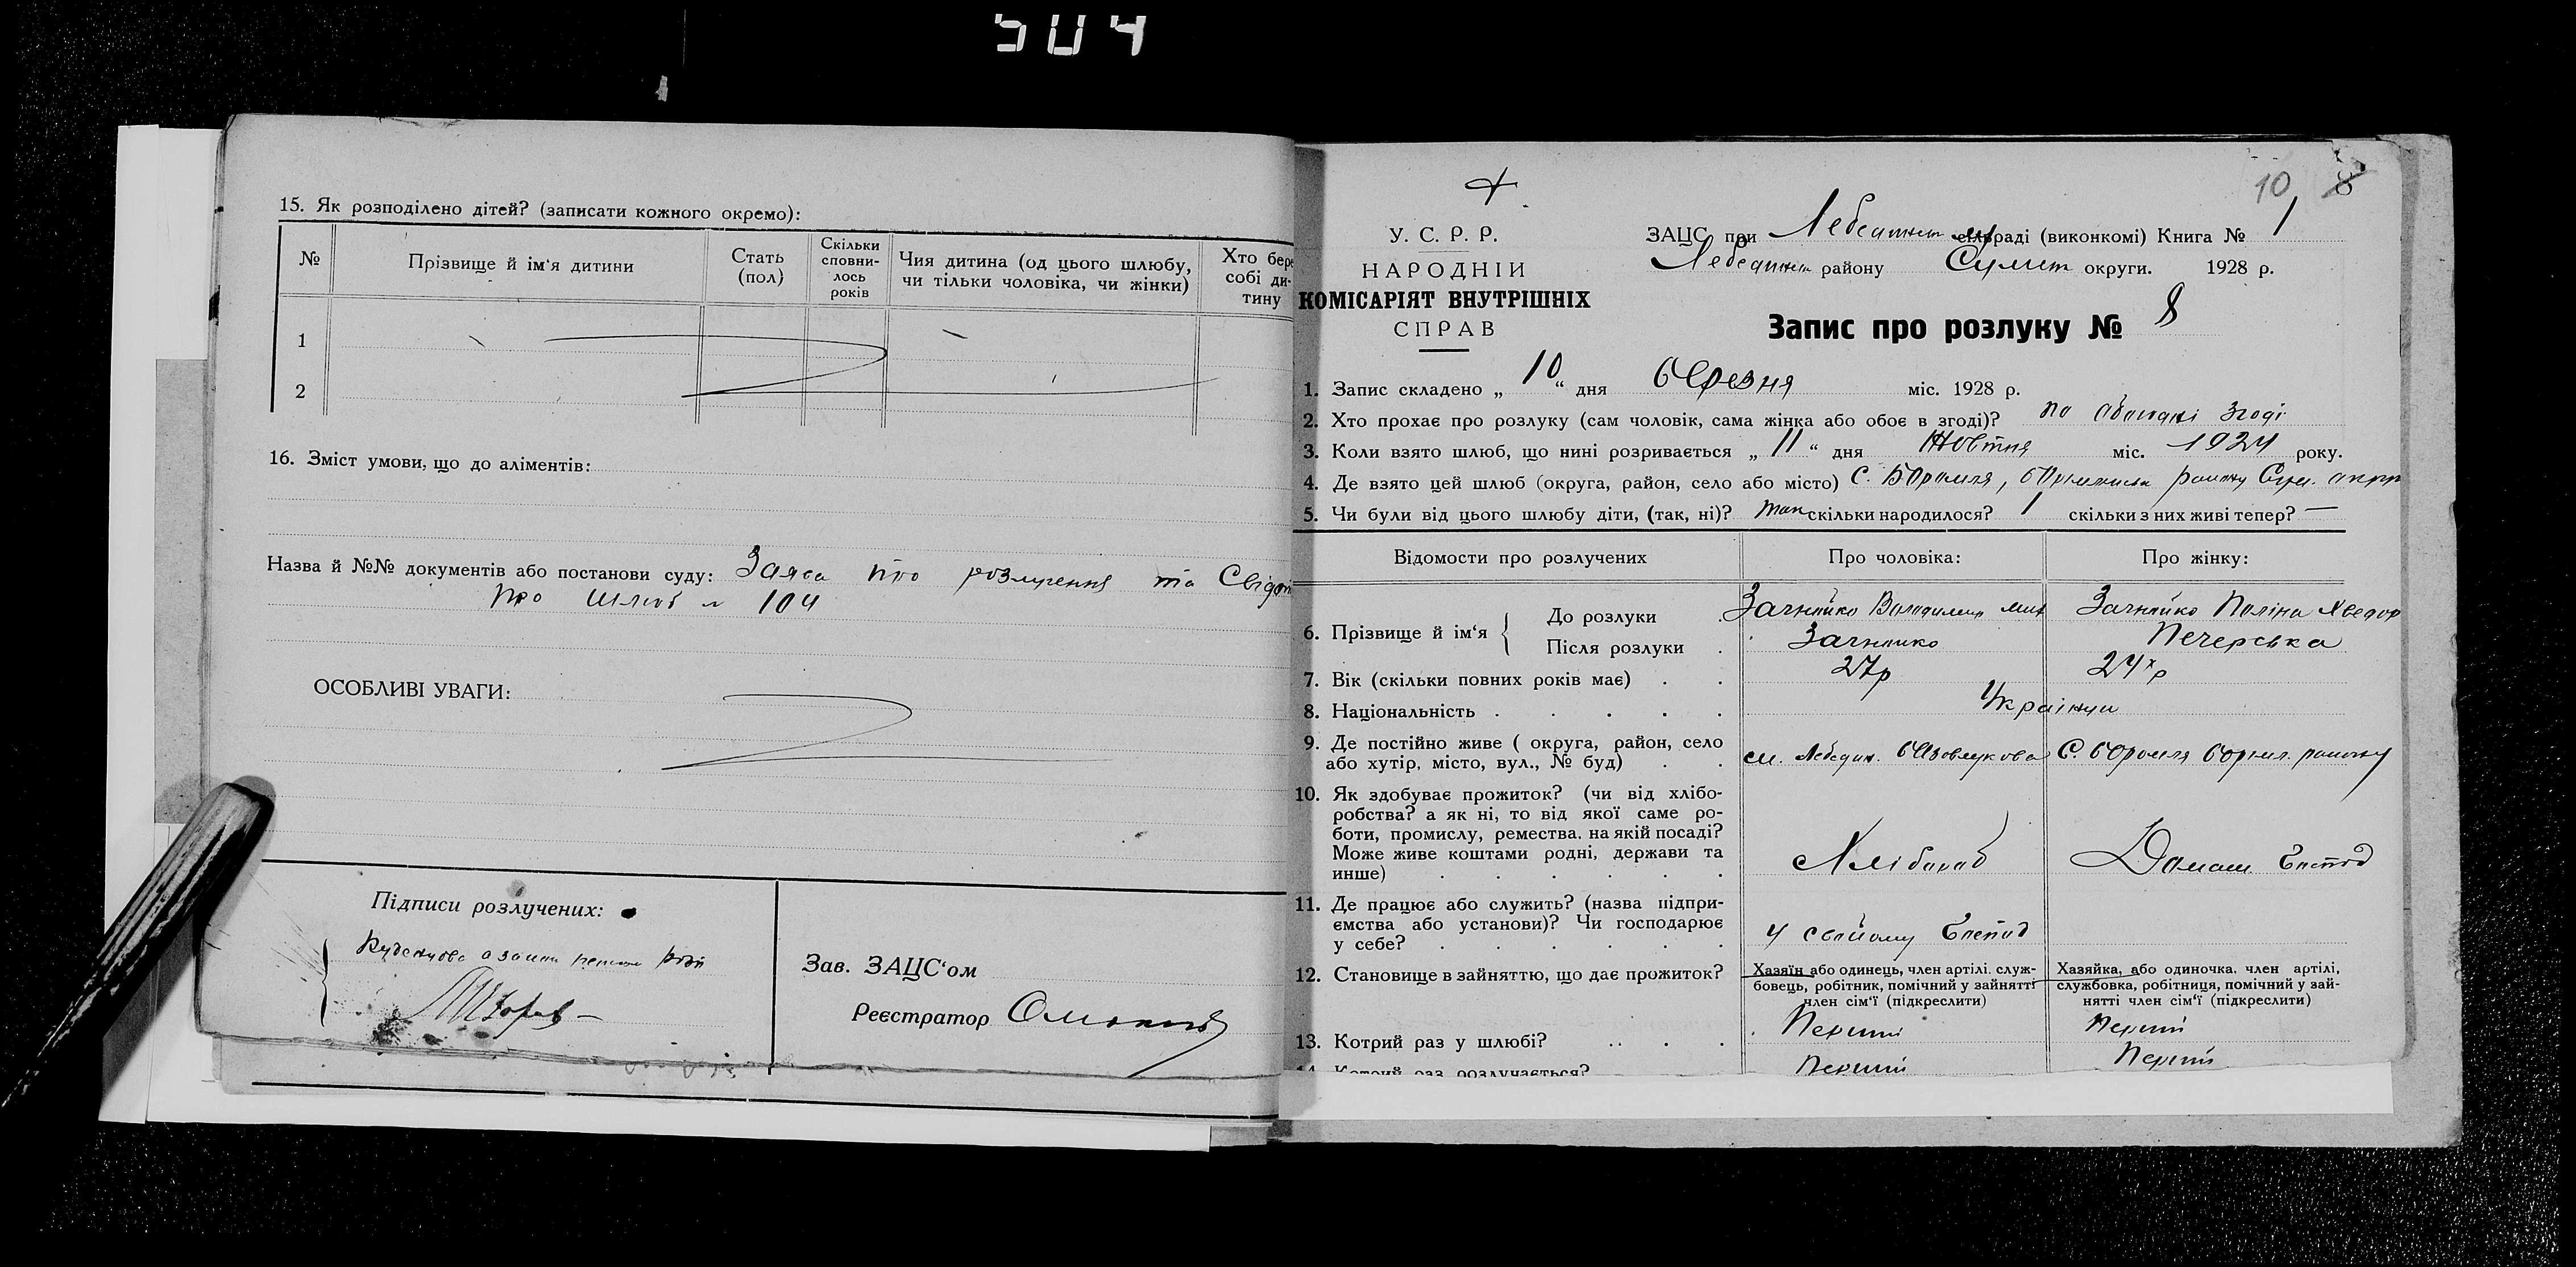 504
15. Як розподілено дітей? (записати кожного окремо):
№ Прізвище й ім'я дитини Стать (пол) Скільки сповнилось років Чия дитина (од цього шлюбу, чи тільки чоловіка, чи жінки) Хто бере собі дитину
1
2
16. Зміст умови, що до аліментів:
Назва й №№ документів або постанови суду: Заява про розлучення та Свідоц
про шлюб № 104
ОСОБЛИВІ УВАГИ:
Підписи розлучених:
Зав. ЗАЦС'ом
Реєстратор
10 8
У. С. Р. Р.
НАРОДНІЙ
КОМІСАРІЯТ ВНУТРІШНІХ
СПРАВ
ЗАЦС при Лебединськ сільраді (виконкомі) Книга № 1
Лебединськ району Сумськ округи. 1928 р.
Запис про розлуку № 8
1. Запис складено „ 10 “ дня березня міс. 1928 р.
2. Хто прохає про розлуку (сам чоловік, сама жінка або обоє в згоді)? по згоді
3. Коли взято шлюб, що нині розривається „ 11 “ дня Жовтня міс. 1924 року.
4. Де взято цей шлюб (округа, район, село або місто) С. Боромля, району Сум. окр
5. Чи були від цього шлюбу діти, (так, ні)? так скільки народилося? 1 скільки з них живі тепер? —
Відомости про розлучених Про чоловіка: Про жінку:
6. Прізвище й ім'я { До розлуки . Володимир Поліна
Після розлуки . Печерська
7. Вік (скільки повних років має) . . 27р 24р
8. Національність . . . . . Українці
9. Де постійно живе ( округа, район, село
або хутір, місто, вул., № буд) . . м. Лебедин. С. Боромля Боромл. району
10. Як здобуває прожиток? (чи від хлібо-
робства? а як ні, то від якої саме ро-
боти, промислу, ремества, на якій посаді?
Може живе коштами родні, держави та
инше) . . . . . . Хлібороб Домаш
11. Де працює або служить? (назва підпри-
ємства або установи)? Чи господарює
у себе? . . . . . . у свойому
12. Становище в зайняттю, що дає прожиток?
Хазяїн або одинець, член артілі, служ-
бовець, робітник, помічний у зайнятті
член сім'ї (підкреслити)
Хазяйка, або одиночка, член артілі,
службовка, робітниця, помічний у зай-
нятті член сім'ї (підкреслити)
13. Котрий раз у шлюбі? .. . . Перший Перший
14. Котрий раз розлучається? Перший Перший